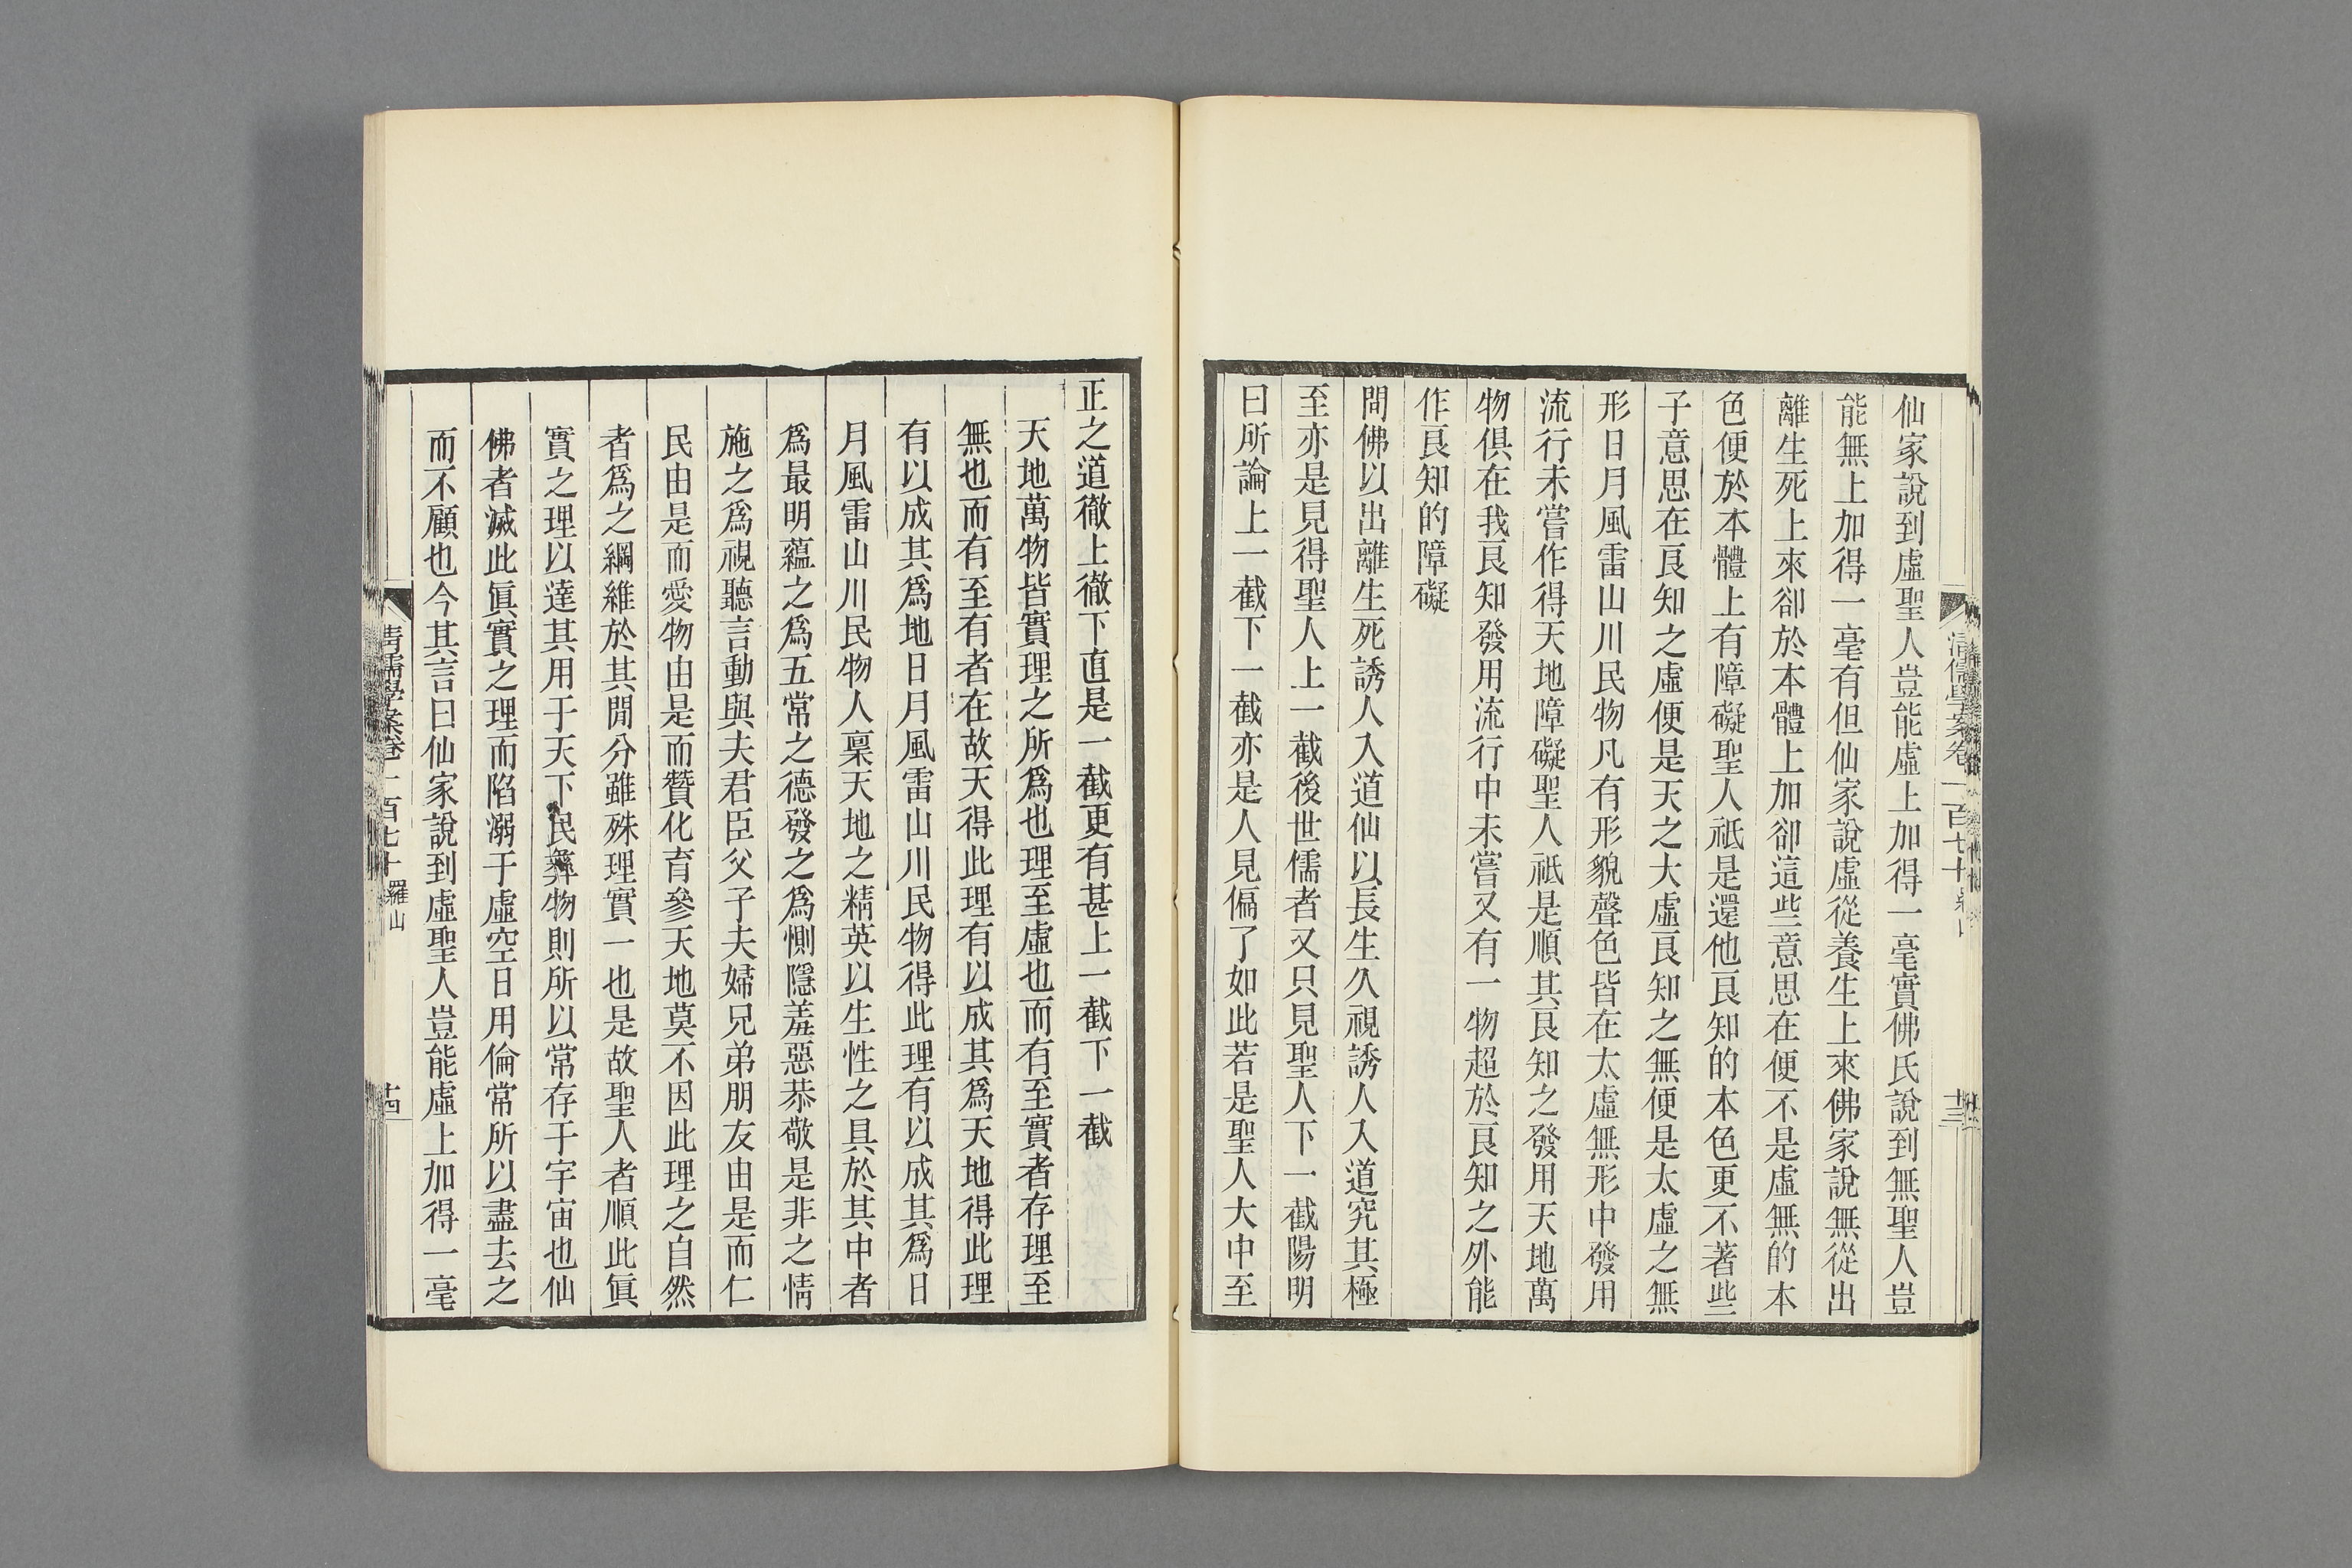 清儒學案卷一百七十
十三
仙家說到虛聖人豈能虛上加得一毫實佛氏說到無聖人豈
能無上加得一毫有但仙家說虛從養生上來佛家說無從出
離生死上來卻於本體上加卻這些意思在便不是虛無的本
色便於本體上有障礙聖人祇是還他良知的本色更不著些
子意思在良知之虛便是天之大虛良知之無便是太虛之無
形日月風雷山川民物凡有形貌聲色皆在太虛無形中發用
流行未嘗作得天地障礙聖人祇是順其良知之發用天地萬
物俱在我良知發用流行中未嘗又有一物超於良知之外能
作良知的障礙
問佛以出離生死誘人入道仙以長生久視誘人入道究其極
至亦是見得聖人上一截後世儒者又只見聖人下一截陽明
曰所論上一截下一截亦是人見偏了如此若是聖人大中至
正之道徹上徹下直是一截更有甚上一截下一截
天地萬物皆實理之所爲也理至虛也而有至實者存理至
無也而有至有者在故天得此理有以成其爲天地得此理
有以成其爲地日月風雷山川民物得此理有以成其爲日
月風雷山川民物人稟天地之精英以生性之具於其中者
爲最明蘊之爲五常之德發之爲惻隱羞惡恭敬是非之情
施之爲視聽言動與夫君臣父子夫婦兄弟朋友由是而仁
民由是而愛物由是而贊化育參天地莫不因此理之自然
者爲之綱維於其閒分雖殊理實一也是故聖人者順此眞
實之理以達其用于天下民彝物則所以常存于宇宙也仙
佛者滅此眞實之理而陷溺于虛空日用倫常所以盡去之
而不顧也今其言曰仙家說到虛聖人豈能虛上加得一毫
清儒學案卷一百七十 羅山
十四